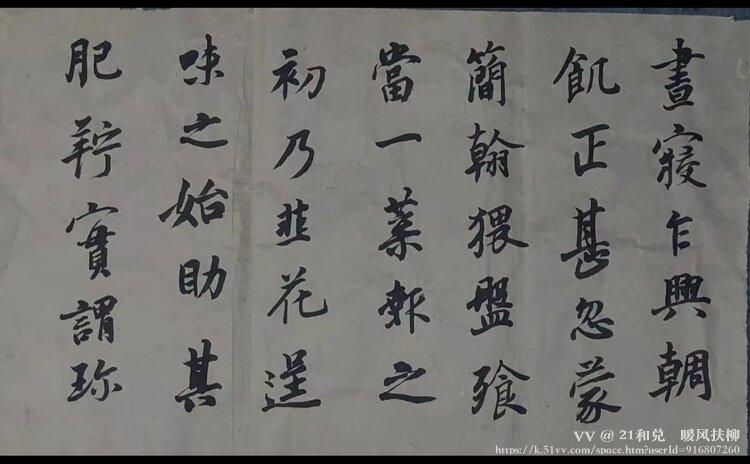 晝寢乍興輖
飢正甚忽蒙
簡翰猥盤飧
當一葉報之
初乃韭花逞
味之始助其
肥羜實謂珍
VV @ 21和兑 暖风扶柳
https://k.51vv.com/space.htm?userId=916807260